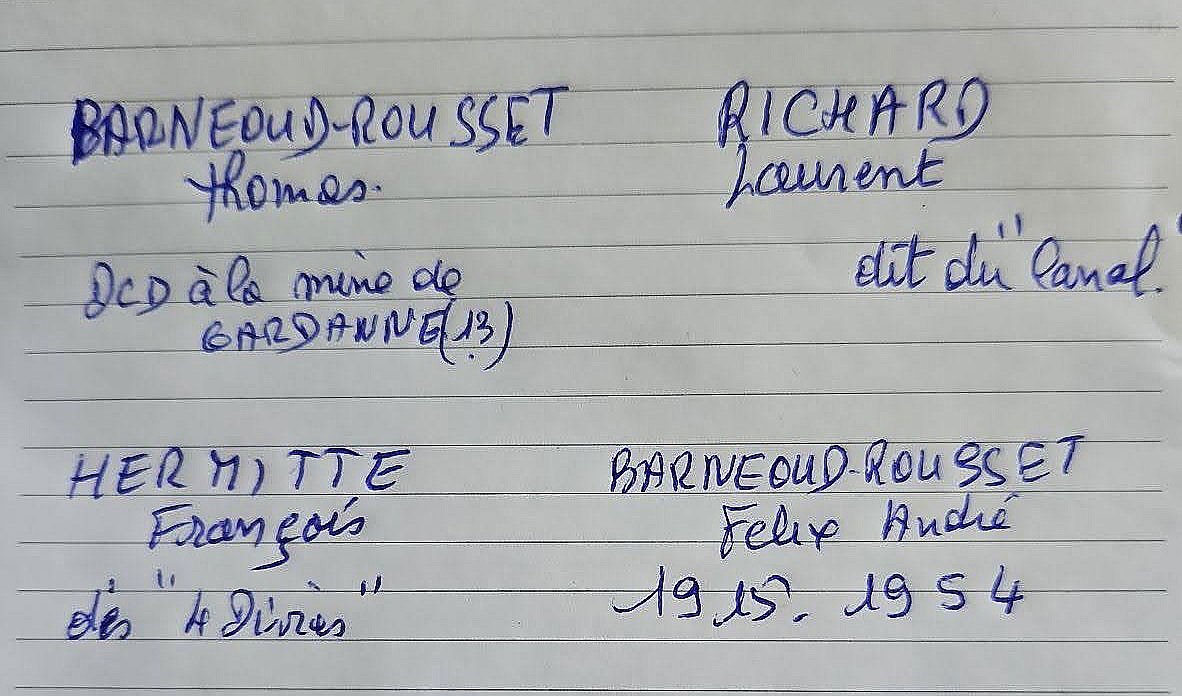 BARNEOUD-ROUSSET
Thomas.
DCD à la mine de
GARDANNE (13)
RICHARD
Laurent
dit du "Canal."
HERMITTE
François
dés "4
BARNEOUD-ROUSSET
Felix André
1915. 1954